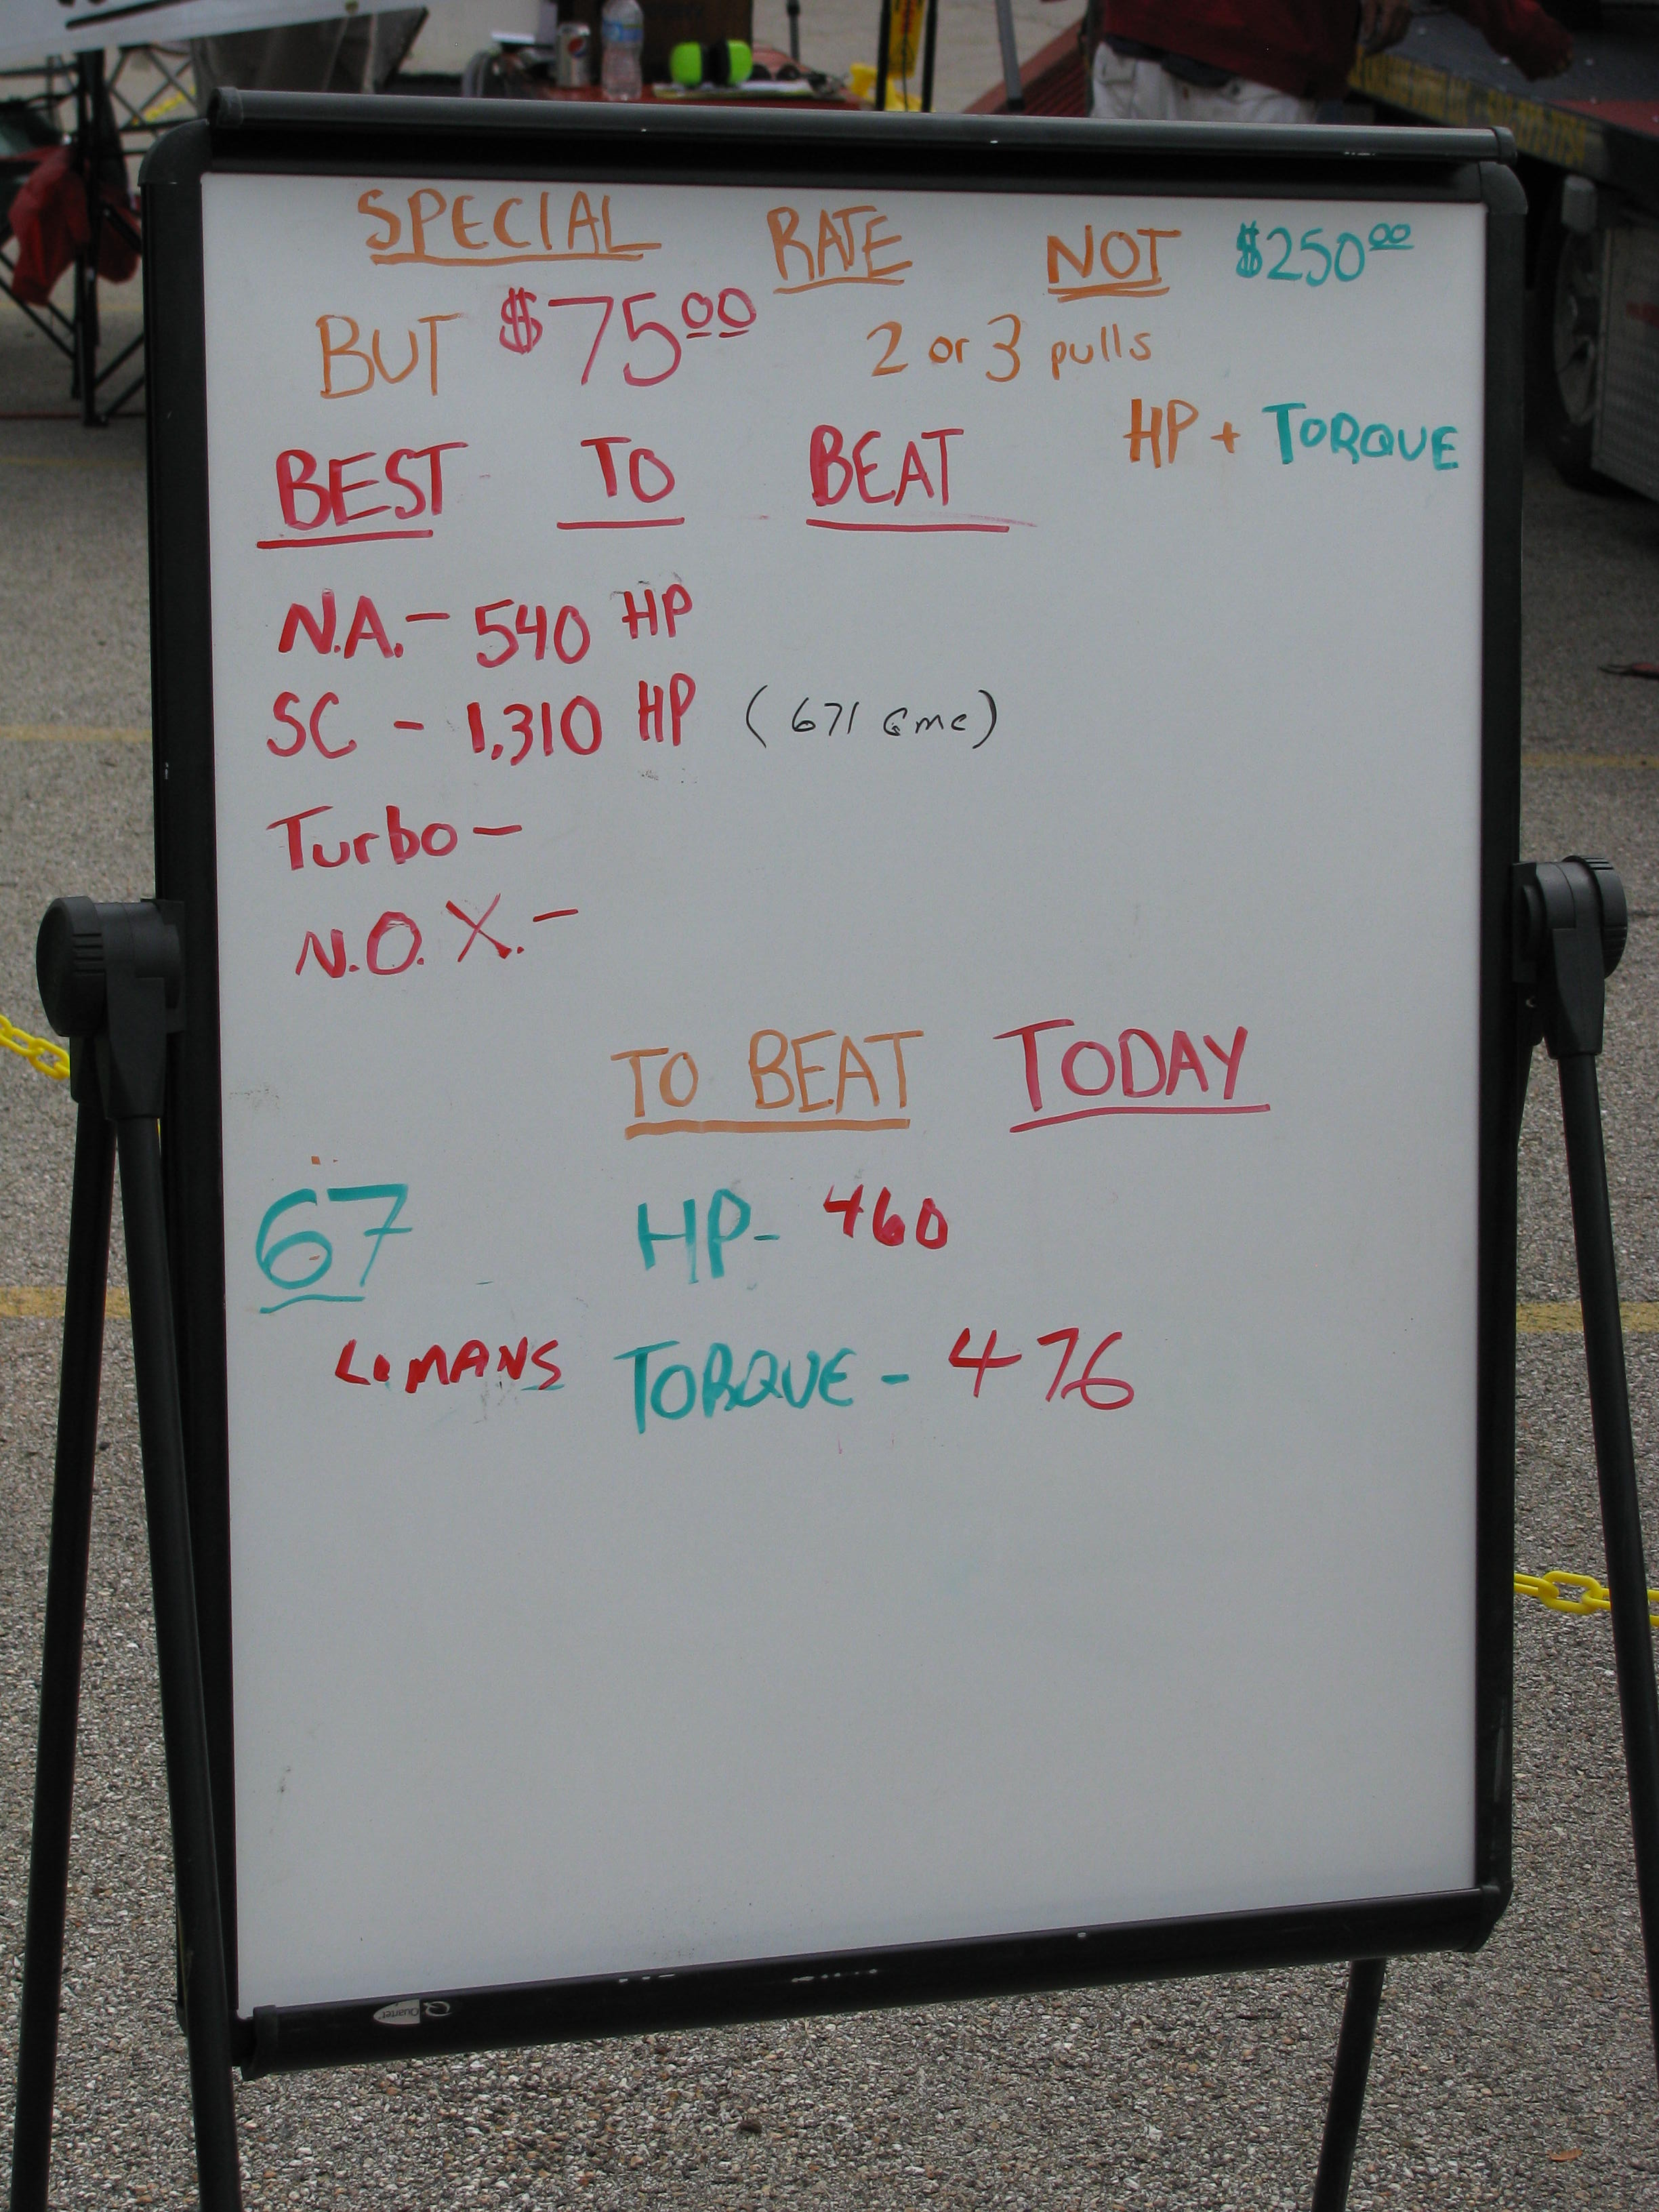 SPECIAL RATE NOT $250⁰⁰
BUT $75⁰⁰ 2 or 3 pulls
HP + TORQUE
BEST TO BEAT
N.A. - 540 HP
SC - 1,310 HP (671 Gmc)
Turbo -
N.O.X. -
TO BEAT TODAY
67 HP- 460
LeMANS TORQUE - 476
Quartet